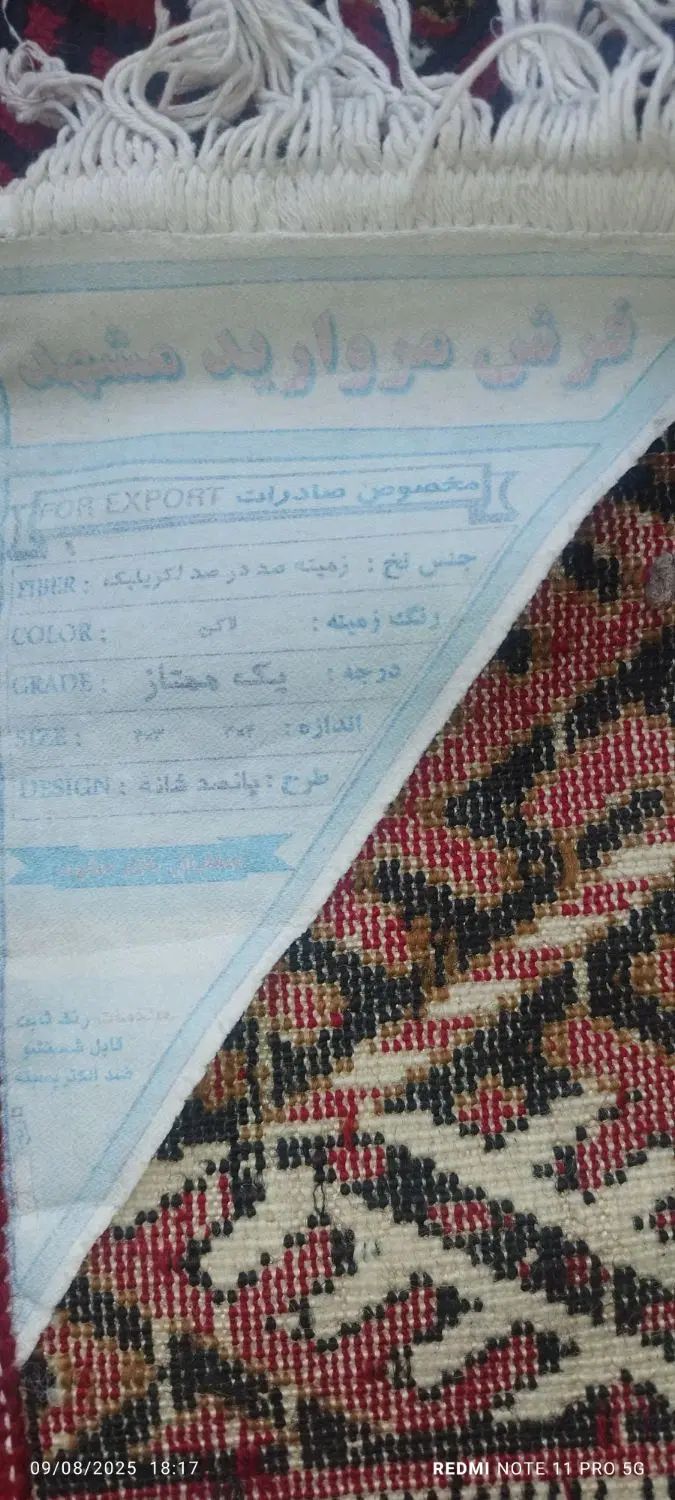 فرش مروارید مشهد
FOR EXPORT مخصوص صادرات
FIBER : جنس نخ : زمینه صد در صد اکریلیک
COLOR : رنگ زمینه : لاکی
GRADE : درجه : یک ممتاز
SIZE : اندازه : ۳×۲ ۳×۲
DESIGN : طرح : پانصد شانه
رنگ ثابت
قابل شستشو
ضد الکتریسته
09/08/2025 18:17
REDMI NOTE 11 PRO 5G